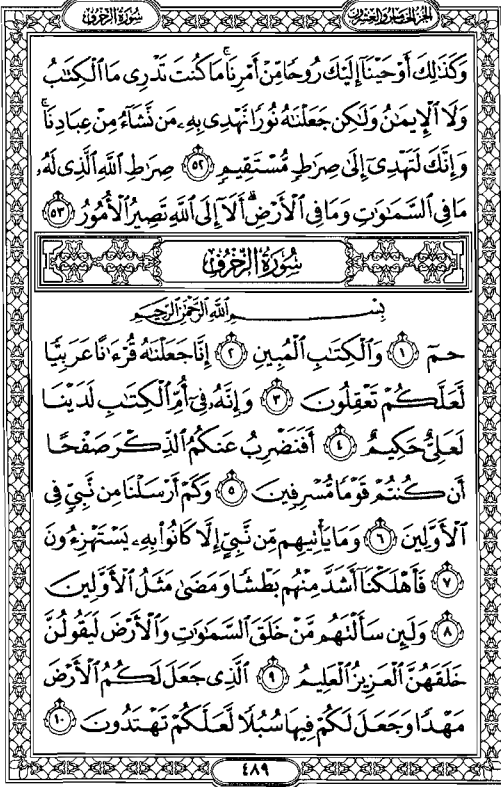 سُورَةُ الزُّخْرُفِ
الجُزْءُ الخَامِسُ وَالعِشْرُونَ
وَكَذَٰلِكَ أَوْحَيْنَآ إِلَيْكَ رُوحًا مِّنْ أَمْرِنَا ۚ مَا كُنتَ تَدْرِى مَا ٱلْكِتَٰبُ
وَلَا ٱلْإِيمَٰنُ وَلَٰكِن جَعَلْنَٰهُ نُورًا نَّهْدِى بِهِۦ مَن نَّشَآءُ مِنْ عِبَادِنَا ۚ
وَإِنَّكَ لَتَهْدِىٓ إِلَىٰ صِرَٰطٍ مُّسْتَقِيمٍ ٥٢ صِرَٰطِ ٱللَّهِ ٱلَّذِى لَهُۥ
مَا فِى ٱلسَّمَٰوَٰتِ وَمَا فِى ٱلْأَرْضِ ۗ أَلَآ إِلَى ٱللَّهِ تَصِيرُ ٱلْأُمُورُ ٥٣
سُورَةُ الزُّخْرُفِ
بِسْمِ ٱللَّهِ ٱلرَّحْمَٰنِ ٱلرَّحِيمِ
حمٓ ١ وَٱلْكِتَٰبِ ٱلْمُبِينِ ٢ إِنَّا جَعَلْنَٰهُ قُرْءَٰنًا عَرَبِيًّا
لَّعَلَّكُمْ تَعْقِلُونَ ٣ وَإِنَّهُۥ فِىٓ أُمِّ ٱلْكِتَٰبِ لَدَيْنَا
لَعَلِىٌّ حَكِيمٌ ٤ أَفَنَضْرِبُ عَنكُمُ ٱلذِّكْرَ صَفْحًا
أَن كُنتُمْ قَوْمًا مُّسْرِفِينَ ٥ وَكَمْ أَرْسَلْنَا مِن نَّبِىٍّ فِى
ٱلْأَوَّلِينَ ٦ وَمَا يَأْتِيهِم مِّن نَّبِىٍّ إِلَّا كَانُوا۟ بِهِۦ يَسْتَهْزِءُونَ
٧ فَأَهْلَكْنَآ أَشَدَّ مِنْهُم بَطْشًا وَمَضَىٰ مَثَلُ ٱلْأَوَّلِينَ
٨ وَلَئِن سَأَلْتَهُم مَّنْ خَلَقَ ٱلسَّمَٰوَٰتِ وَٱلْأَرْضَ لَيَقُولُنَّ
خَلَقَهُنَّ ٱلْعَزِيزُ ٱلْعَلِيمُ ٩ ٱلَّذِى جَعَلَ لَكُمُ ٱلْأَرْضَ
مَهْدًا وَجَعَلَ لَكُمْ فِيهَا سُبُلًا لَّعَلَّكُمْ تَهْتَدُونَ ١٠
٤٨٩